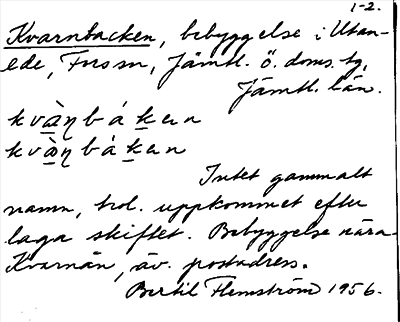 1-2.
Kvarnbacken, bebyggelse i Utan-
ede, Fors sn, Jämtl. ö. doms. tg,
Jämtl. län.
kvàŋbákan
kvàŋbákan
Intet gammalt
namn, trol. uppkommet efter
laga skiftet. Bebyggelse nära
Kvarnån, äv. postadress.
Bertil Flemström 1956.